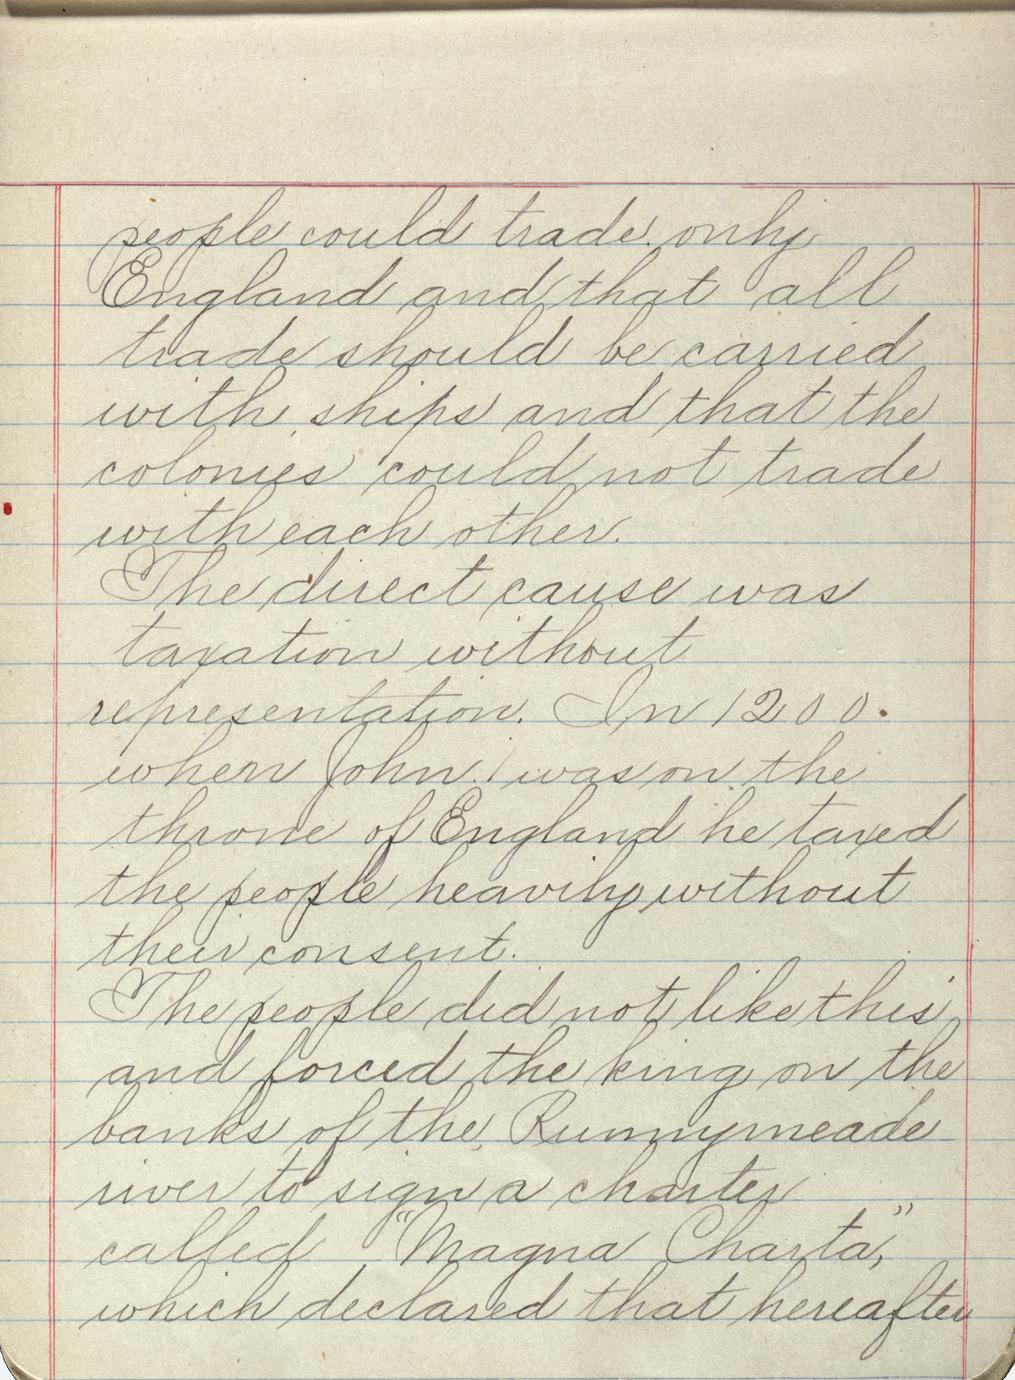 people could trade only
England and that all
trade should be carried
with ships and that the
colonies could not trade
with each other.
The direct cause was
taxation without
representation. In 1200.
when John I was on the
throne of England he taxed
the people heavily without
their consent.
The people did not like this
and forced the king on the
banks of the Runnymeade
river to sign a charter
called "Magna Charta,"
which declared that hereafter